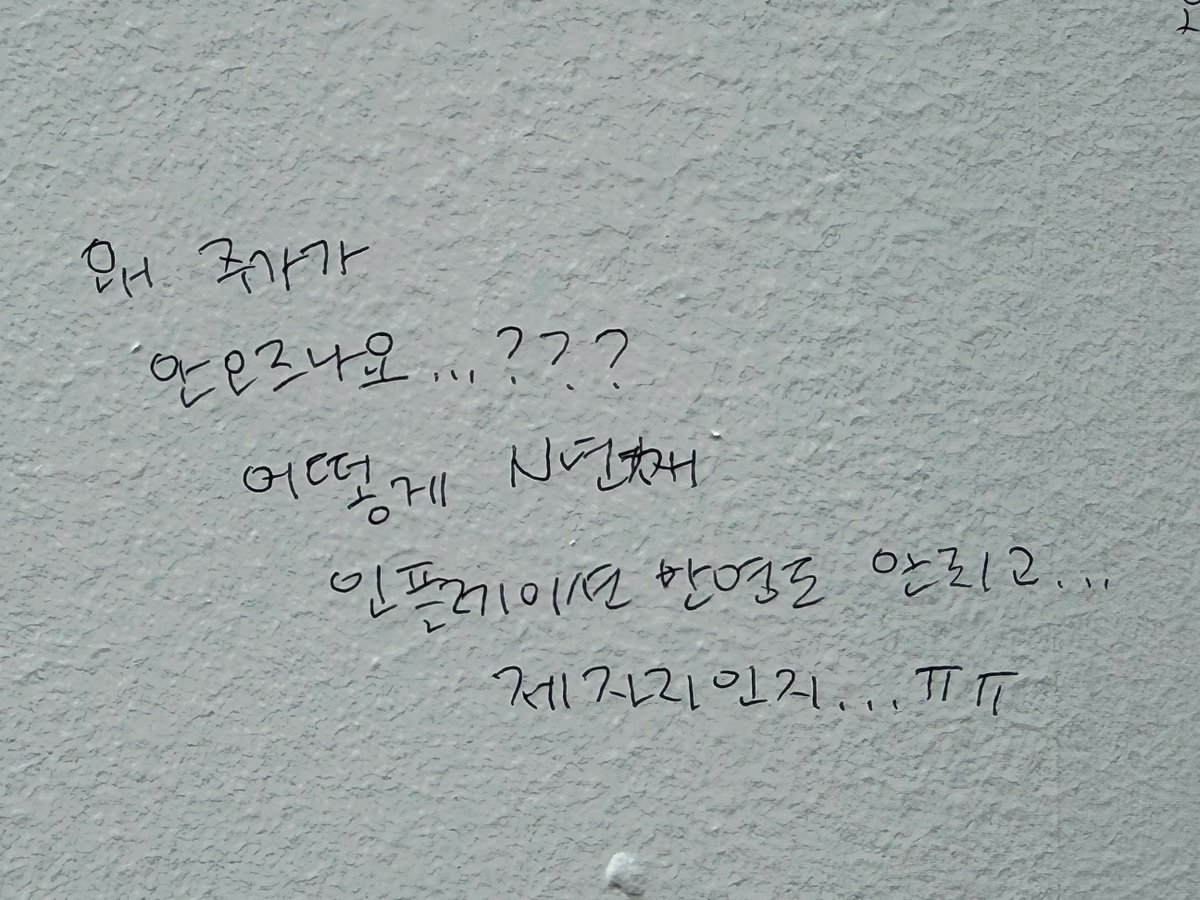 왜 주가가
안오르나요...???
어떻게 N년째
인플레이션 반영도 안되고...
제자리인지...ㅠㅠ